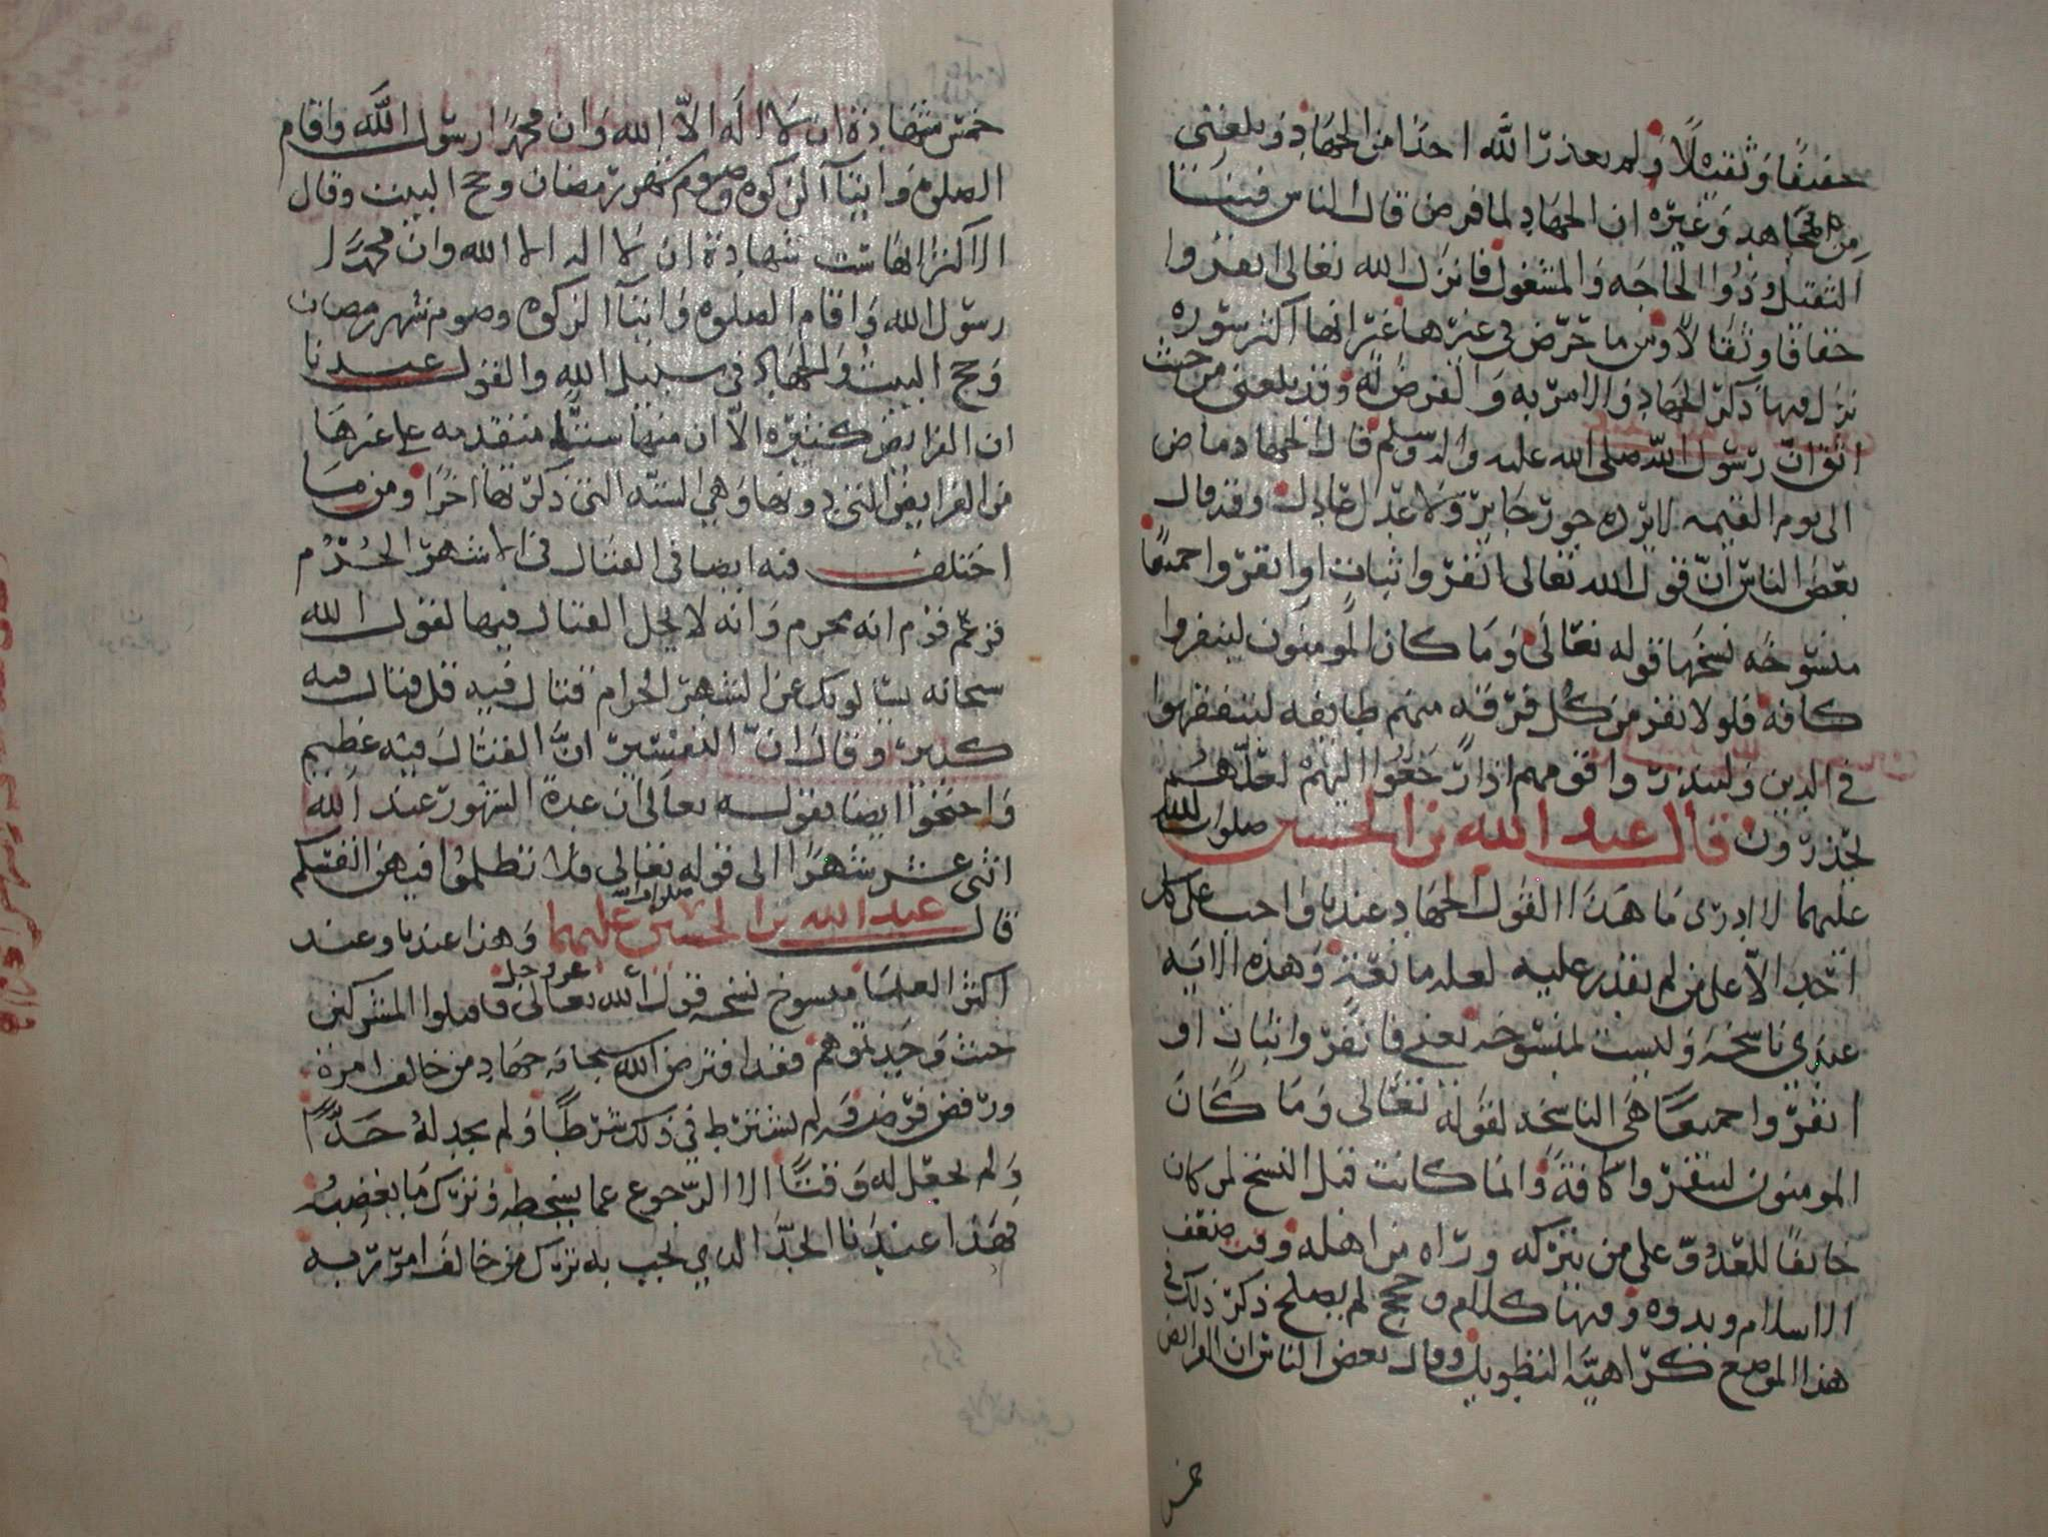 خفيفًا وثقيلًا ولم يعذر الله احدًا من الجهاد وبلغني
من المجاهد وغيره ان الجهاد لما فرض قال الناس فينا
الثقيل وذوا الحاجه والمشغول فانزل الله تعالى انفروا
خفافا وثقالًا ومن ما حرض في غيرها غير انها اكثر سوره
نزل فيها ذكر الجهاد والامر به والفرض له وقد بلغني من حيث
اثق ان رسول الله صلى الله عليه واله وسلم قال الجهاد ماض
الى يوم القيمه لا يرده جور جاير ولا عدل عادل وقد قال
بعض الناس ان قول الله تعالى انفروا ثباتٍ او انفروا جميعًا
منسوخه نسخها قوله تعالى وما كان المومنون لينفروا
كافه فلولا نفر من كل فرقه منهم طايفه ليتفقهوا
في الدين ولينذروا قومهم اذا رجعوا اليهم لعلهم
يحذرون قال عبد الله بن الحسين صلوات الله
عليهما لا ادرى ما هذا القول الجهاد عندنا واجب على كل
احد الا على من لم يقدر عليه لعله مانعة وهذه الايه
عندي ناسخه وليست بمنسوخه يعني فانفروا ثبات او
انفروا جميعًا هي الناسخه لقوله تعالى وما كان
المومنون لينفروا كافةً وانما كانت قبل النسخ لمن كان
خايفًا للعدو على من يتركه وراه من اهله وقت ضعف
الاسلام وبدوه وفيها كلام وحجج لم يصلح ذكر ذلك في
هذا الموضع كراهيّة التطويل وقال بعض الناس ان الفرايض
خمس
خمس شهادة ان لا اله الّا الله وان محمدًا رسول الله واقام
الصلوه وايتآ الزكوه وصوم شهر رمضان وحج البيت وقال
الاكثر انها ست شهادة ان لا اله الا الله وان محمدًا
رسول الله واقام الصلوه وايتآ الزكوه وصوم شهر رمضان
وحج البيت والجهاد في سبيل الله والقول عندنا
ان الفرايض كثيره الّا ان منها ستّة متقدمه على غيرها
من الفرايض التي دونها وهي الستّه التي ذكرتها اخرًا ومن ما
اختلف فيه ايضا في القتال في الاشهر الحُرُم
فزعم قوم انه محرم وانه لا يحل القتال فيها لقول الله
سبحانه يسالونك عن الشهر الحرام قتال فيه قل قتال فيه
كبير وقال ان التفسير ان القتال فيه عظيم
واحتجوا ايضا بقوله تعالى ان عدة الشهور عند الله
اثنى عشر شهرًا الى قوله تعالى فلا تظلموا فيهن انفسكم
قال عبد الله بن الحسين صلوات الله عليهما وهذا عندنا وعند
اكثر العلما منسوخ نسخه قول الله تعالى عز وجل فاقتلوا المشركين
حيث وجدتموهم فقد افترض الله سبحانه جهاد من خالف امره
ورفض فرضه ولم يشترط في ذلك شرطًا ولم يجد له حدًّا
ولم يجعل له وقتًا الا الرجوع عما يسخطه وترك ما يغضبه
فهذا عندنا الحد الذي يجب به ترك من خالف امر ربه